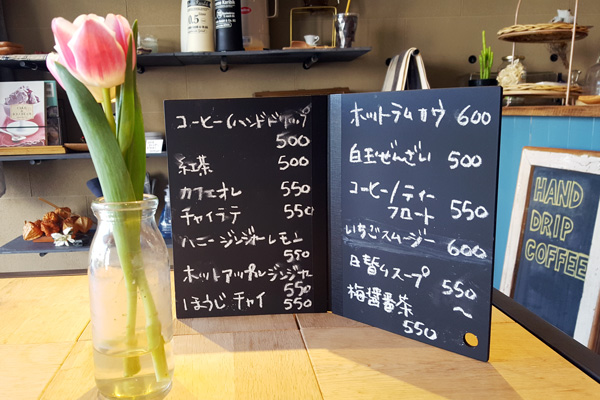 コーヒー(ハンドドリップ)
500
紅茶 500
カフェオレ 550
チャイラテ 550
ハニージンジャーレモン
550
ホットアップルジンジャー
550
ほうじチャイ 550
ホットラムカウ 600
白玉ぜんざい 500
コーヒー/ティー
フロート 550
いちごスムージー
600
日替りスープ
550
~
梅醤番茶
550
HAND
DRIP
COFFEE